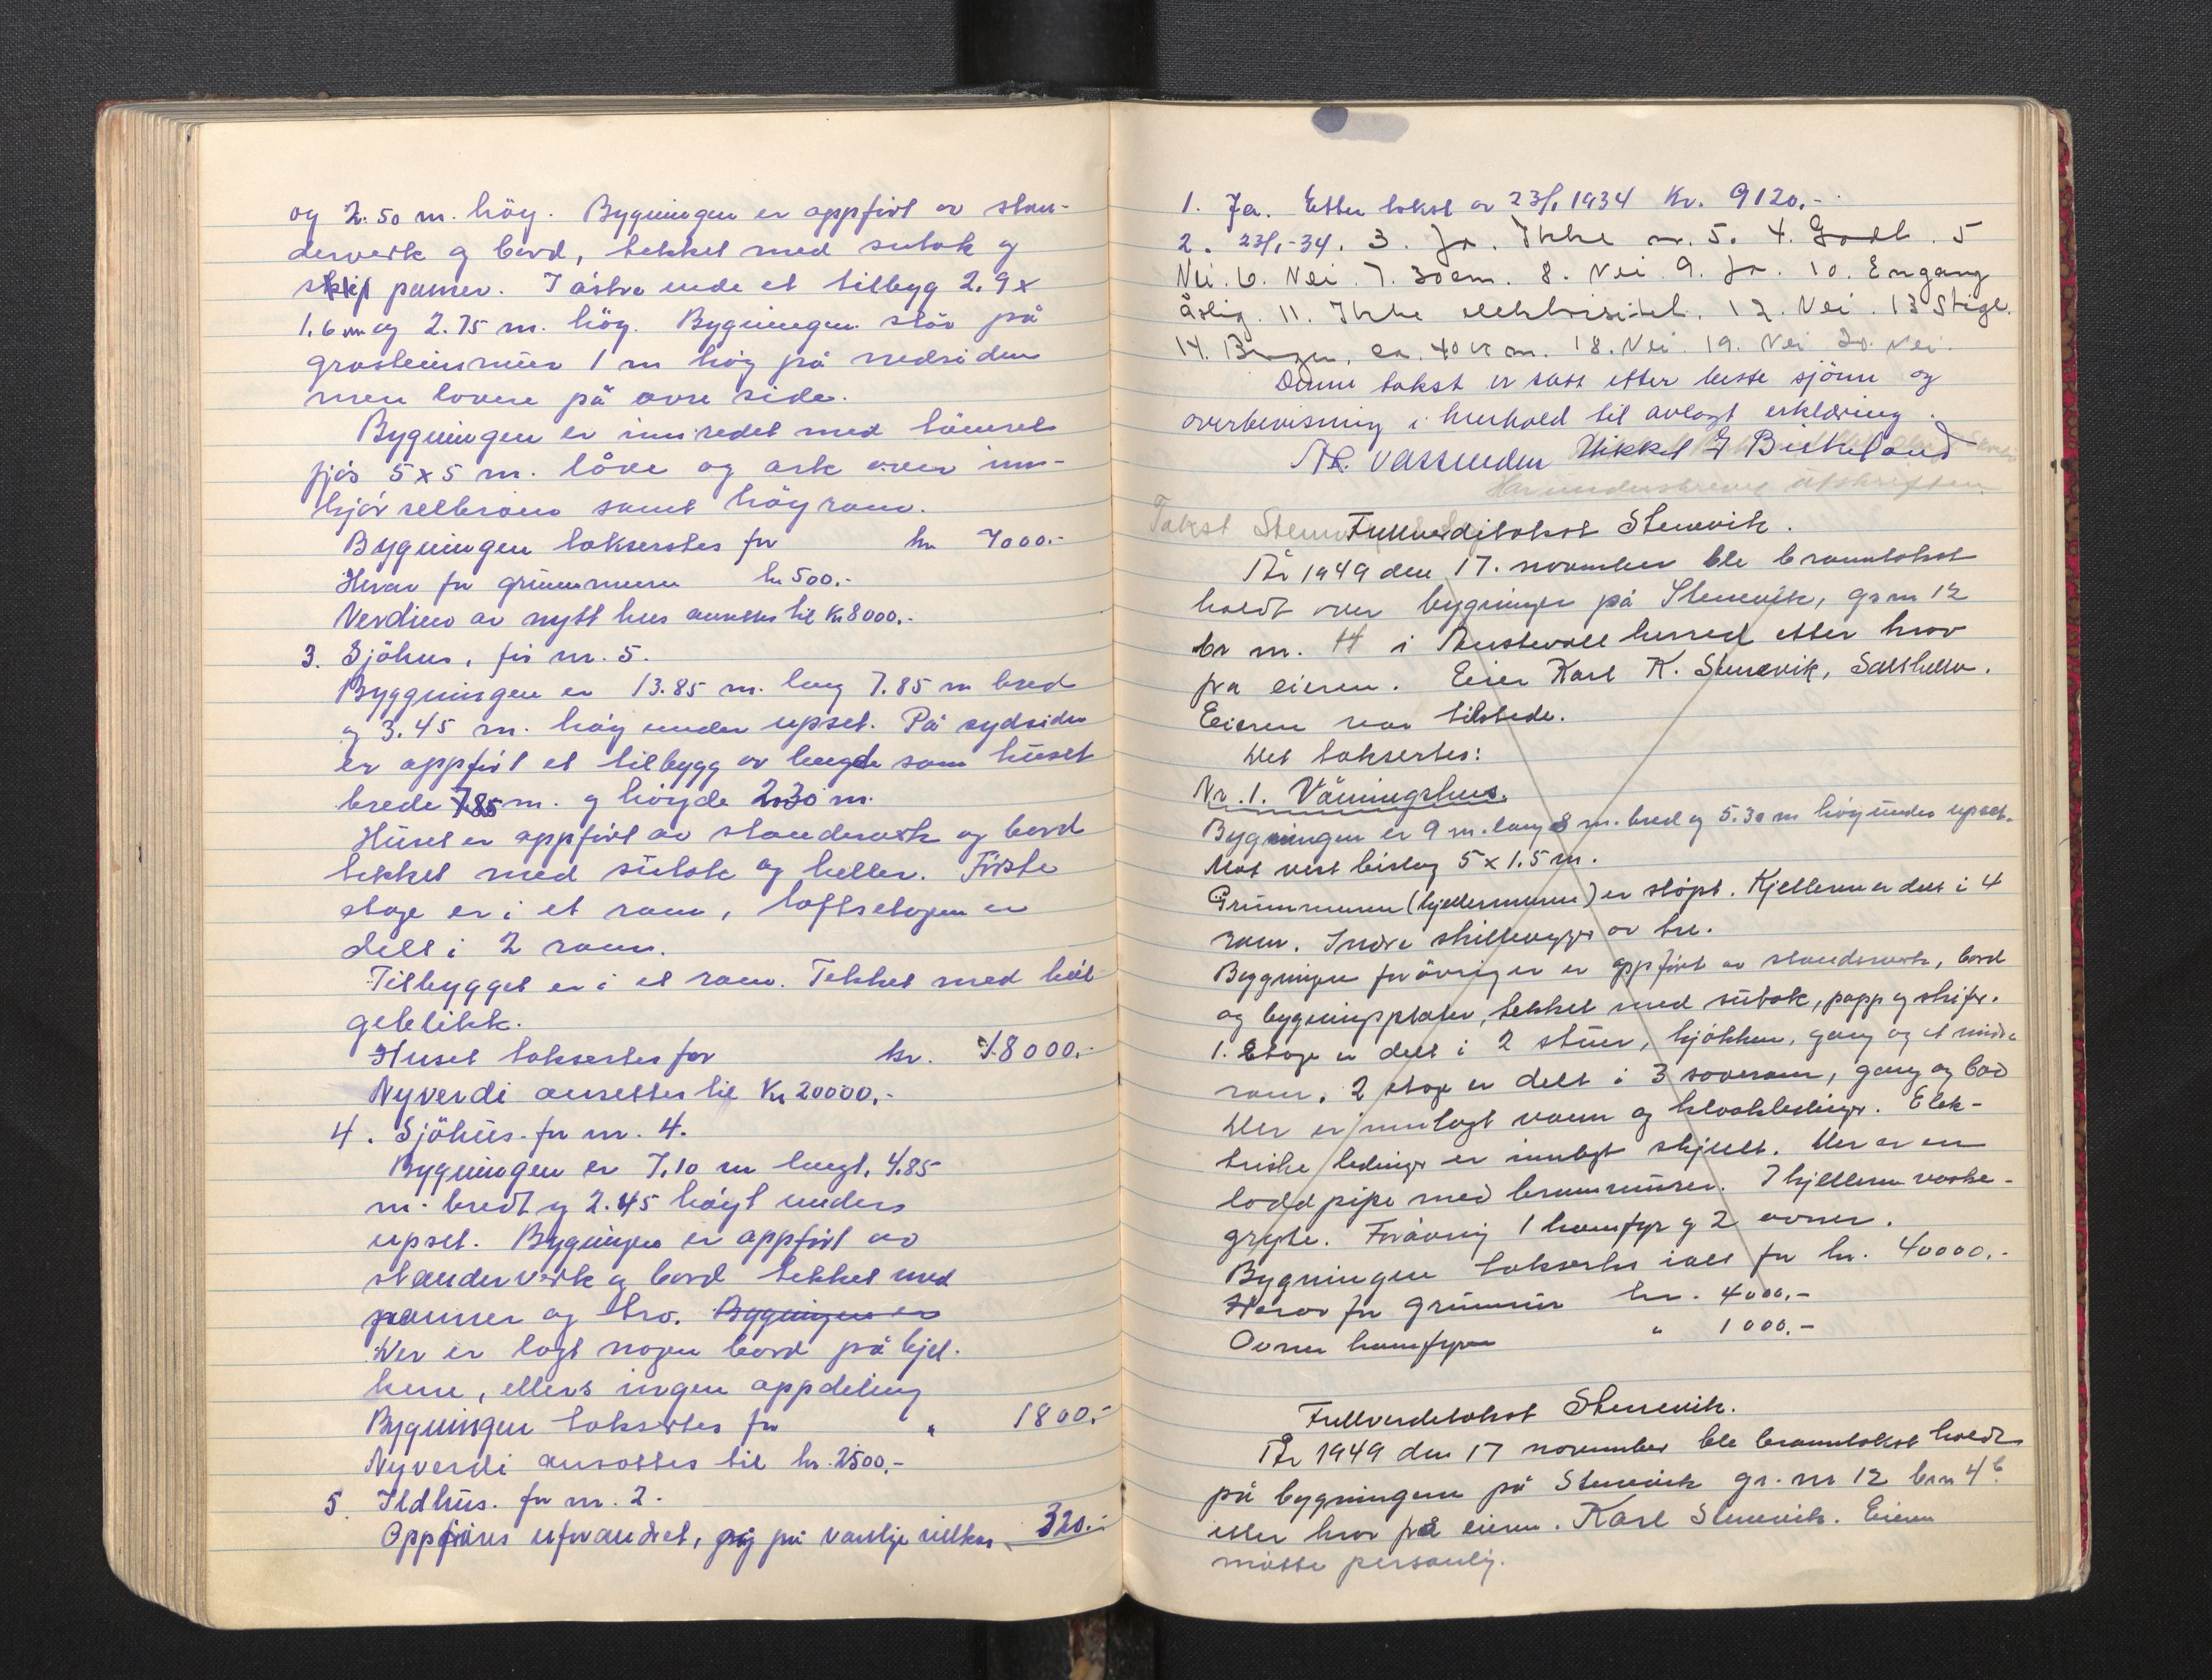 og 2.50 m. höy. Bygningen er oppfört av stan-
derverk og bord, tekket med sutak og
skif panner. I östre ende et tilbyg 2.9 x
1.6 m og 2.75 m. höy. Bygningen står på
gråsteinsmur 1 m höy på nedsiden
men lavere på øvre side.
Bygningen er innredet med tömret
fjös 5 x 5 m. låve og ark over inn-
kjörselbroen samt höyrom.
Bygningen takseres for kr 7000.-
Herav for grunnmuren kr 500.-
Verdien av nytt hus ansettes til kr 8000.-
3. Sjöhus, för nr. 5.
Byggningen er 13.85 m. lang 7.85 m bred
og 3.45 m. höy under upset. På sydsiden
er oppfört et tilbygg av lengde som huset
brede 7.85 m. og höyde 2.30 m.
Huset er oppfört av standerverk og bord
tekket med sutak og heller. Förste
etage er i et rom, loftsetagen er
delt i 2 rom.
Tilbygget er i et rom. Tekket med böl-
geblikk.
Huset taksertes for kr. 18000.-
Nyverdi ansettes til Kr 20000.-
4. Sjöhus. för nr. 4.
Bygningen er 7.10 m langt, 4.85
m. bredt og 2.45 höyt under
upset. Bygningen er oppfört av
standerverk og bord tekket med
panner og tro. Bygningen er
Der er lagt nogen bord på bjel-
kene, ellers ingen oppdeling
Bygningen taksertes for " 1800.-
Nyverdi ansettes til kr. 2500.-
5. Ildhus. för nr. 2.
Oppföres uforandret, på vanlige vilkår 320.-
1. Ja. Etter takst av 23/1 1934 Kr. 9120.-
2. 23/1-34. 3. Ja. Ikke nr. 5. 4. Godt. 5
Nei. 6. Nei 7. 30 cm. 8. Nei 9. Ja. 10. Engang
årlig. 11. Ikke elektrisitet. 12. Nei. 13 Stige.
14. Bergen, ca. 40 km. 18. Nei 19. Nei 20. Nei.
Denne takst er satt etter beste sjönn og
overbevisning i henhold til avlagt erklæring.
Vassenden Mikkel Birkeland
Har underskrevet utskriften
Takst
Fullverditakst Stenevik.
År 1949 den 17. november ble branntakst
holdt over bygninger på Stenevik, gr nr 12
br nr. 4 i Austevoll herred etter krav
fra eieren. Eier Karl K. Stenevik,
Eieren var tilstede.
Det taksertes:
Nr. 1. Våningshus.
Bygningen er 9 m. lang 8 m. bred og 5.30 m höy under upset.
Mot vest bislag 5 x 1.5 m.
Grunnmuren (kjellermuren) er stöpt. Kjelleren er delt i 4
rom. Indre skillevegger av tre.
Bygningen forövrig er oppfört av standerverk, bord
og bygningsplater, tekket med sutak, papp og skifer.
1. Etage er delt i 2 stuer, kjökken, gang og et mindre
rom. 2 etage er delt i 3 soverom, gang og bad
Der er innlagt vann og kloakledninger. Elek-
triske ledninger er innlagt skjult. Der er en
lodd pipe med brannmurer. I kjelleren vaske-
gryte. Forövrig 1 komfyr og 2 ovner.
Bygningen taksertes ialt for kr. 40000.-
Herav for grunnmur kr. 4000.-
Ovner komfyren " 1000.-
Fullverditakst Stenevik.
År 1949 den 17 november ble branntakst holdt
på bygningene på Stenevik gr. nr 12 br nr 4 b
etter krav fra eieren. Karl Stenevik. Eieren
møtte personlig.